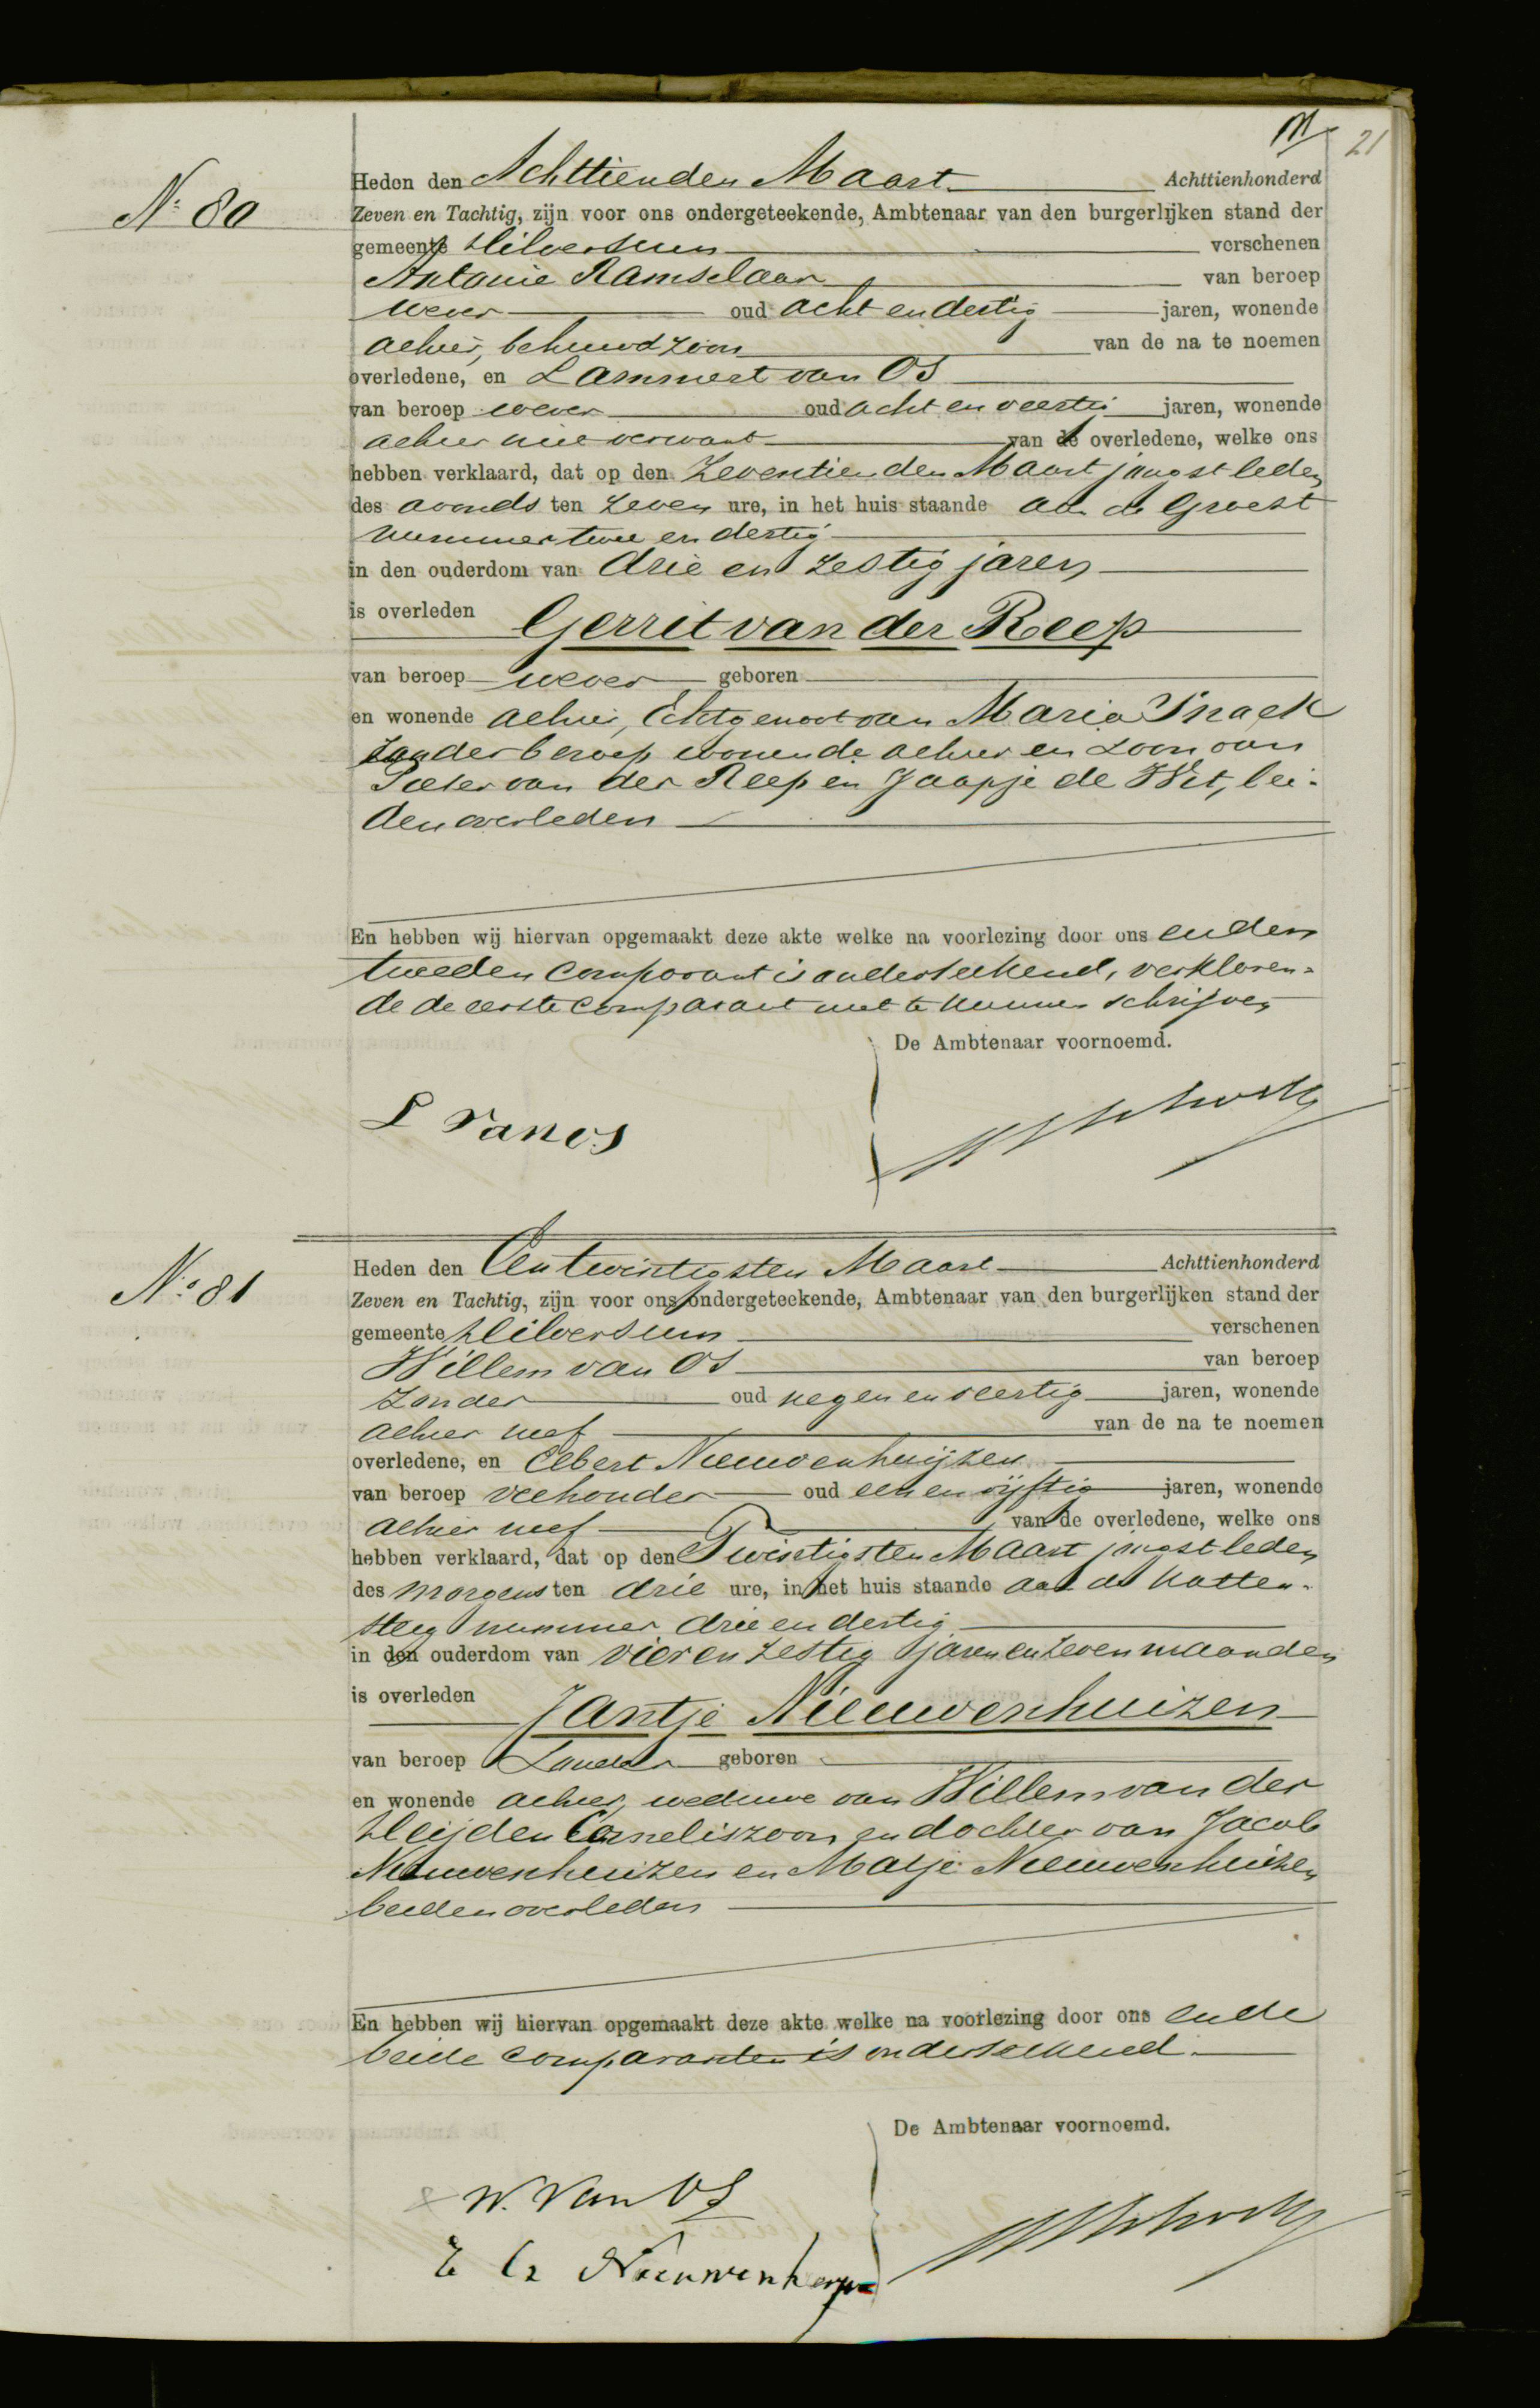 21
N: 80
Heden den Achttienden Maart Achttienhonderd
Zeven en Tachtig, zijn voor ons ondergeteekende, Ambtenaar van den burgerlijken stand der
gemeente Hilversum verschenen
Antonie Ramselaar van beroep
wever oud acht en dertig jaren, wonende
alhier, behuwdzoon van de na te noemen
overledene, en Lammert van Os
van beroep wever oud acht en veertig jaren, wonende
alhier niet verwant van de overledene, welke ons
hebben verklaard, dat op den Zeventienden Maart jongstleden
des avonds ten zeven ure, in het huis staande aan de Groest
nummer twee en dertig
in den ouderdom van drie en zestig jaren
is overleden Gerrit van der Reep
van beroep wever geboren
en wonende alhier, Echtgenoot van Maria Snack
zonder beroep wonende alhier en zoon van
Pieter van der Reep en Jaapje de Wit, bei-
den overleden
En hebben wij hiervan opgemaakt deze akte welke na voorlezing door ons en den
tweeden comparant is onderteekend, verklaren-
de de eerste comparant niet te kunnen schrijven
De Ambtenaar voornoemd.
L van Os
No 81
Heden den Een twintigsten Maart Achttienhonderd
Zeven en Tachtig, zijn voor ons ondergeteekende, Ambtenaar van den burgerlijken stand der
gemeente Hilversum verschenen
Willem van Os van beroep
zonder oud negen en veertig jaren, wonende
alhier neef van de na te noemen
overledene, en Elbert Nieuwenhuijzen
van beroep veehouder oud een en vijftig jaren, wonende
alhier neef van de overledene, welke ons
hebben verklaard, dat op den Twintigsten Maart jongstleden
des morgens ten drie ure, in het huis staande aan de Katten-
steeg nummer drie en dertig
in den ouderdom van vier en zestig jaren en zeven maanden
is overleden Jantje Nieuwenhuizen
van beroep Zonder geboren
en wonende alhier, weduwe van Willem van der
Heijden Corneliszoon en dochter van Jacob
Nieuwenhuizen en Matje Nieuwenhuizen
beiden overleden
En hebben wij hiervan opgemaakt deze akte welke na voorlezing door ons en de
beide comparanten is onderteekend.
De Ambtenaar voornoemd.
W. Van Os